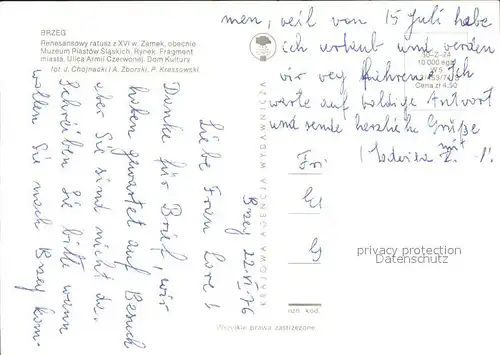 BRZEG
Renesansowy ratusz z XVI w. Zamek, obecnie
Muzeum Piastów Śląskich. Rynek. Fragment
miasta. Ulica Armii Czerwonej. Dom Kultury
fot. J. Chojnacki i A. Zborski, P. Krassowski
KRAJOWA AGENCJA WYDAWNICZA
10 000 egz
Cena zł 4,50
nzn kod.
Wszelkie prawa zastrzeżone
Brzeg 22.VI.76
Liebe Frau Lore!
Danke für Brief, wir
haben gewartet auf Besuch
aber Sie sind nicht da.
Schreiben Sie bitte wann
wollen Sie nach Brzeg kom-
men, weil von 15 Juli habe
ich urlaub und werden
wir weg fahren. Ich
warte auf baldige Antwort
und sende herzliche Grüße
mit
Fri
privacy protection
Datenschutz